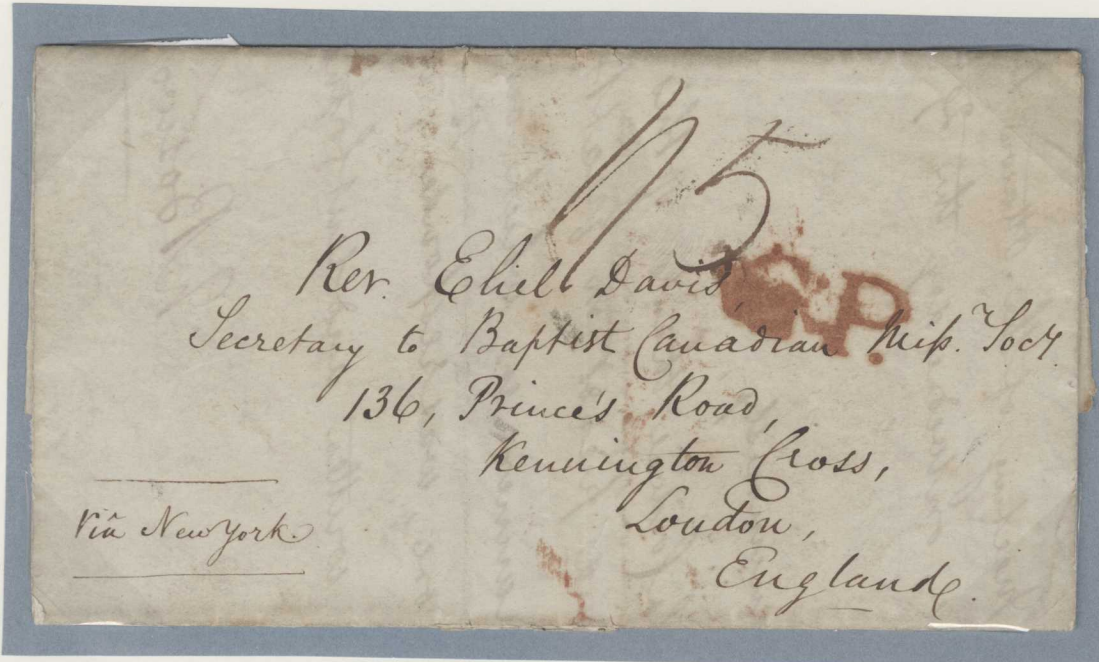 1/5
Rev. Eliel Davis,
Secretary to Baptist Canadian Miss.y Socy.
136, Prince's Road,
Kennington Cross,
London,
England.
Via New York